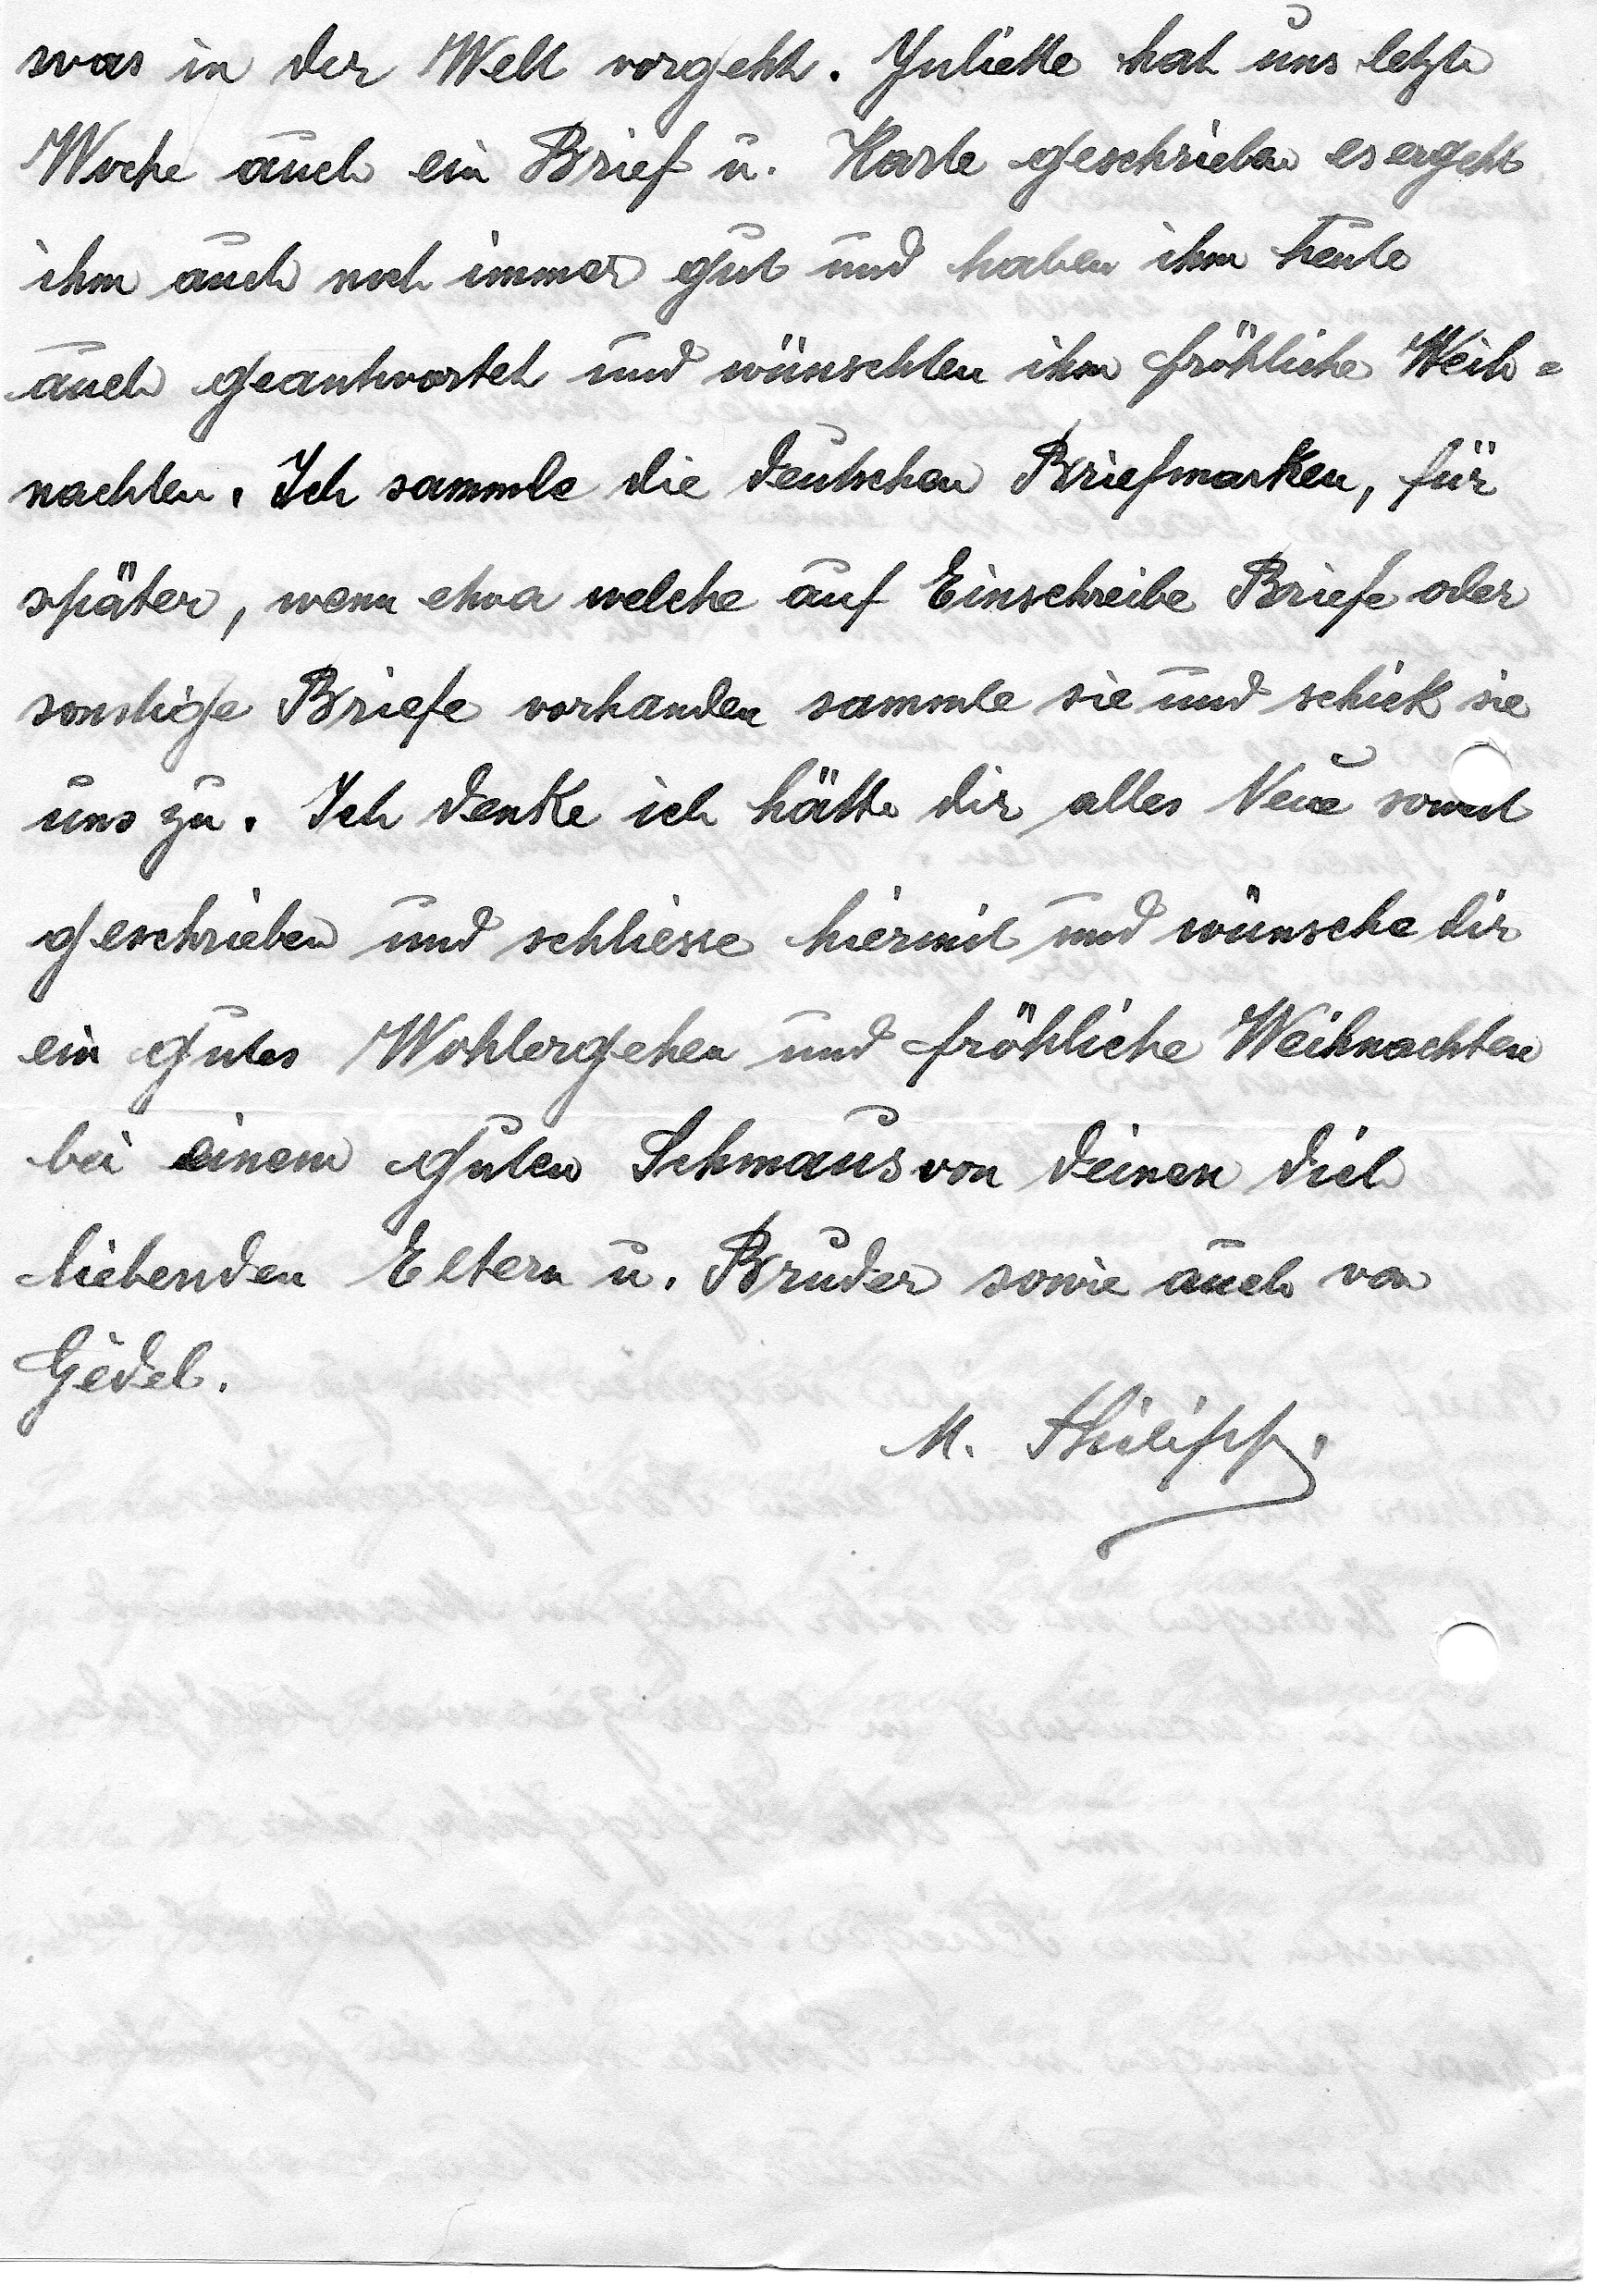 was in der Welt vorgeht. Juliette hat uns letzte
Woche auch ein Brief u. Karte geschrieben es ergeht
ihm auch noch immer gut und haben ihm heute
auch geantwortet und wünschten ihm fröhliche Weih=
nachten. Ich sammle die deutschen Briefmarken, für
später, wenn etwa welche auf Einschreibe Briefe oder
sonstige Briefe vorhanden sammle sie und schick sie
uns zu. Ich denke ich hätte dir alles Neue soweit
geschrieben und schliesse hiermit und wünsche dir
ein gutes Wohlergehen und fröhliche Weihnachten
bei einem guten Schmaus von deinen dich
liebenden Eltern u. Bruder sowie auch von
Gédel.
M. Philipp.